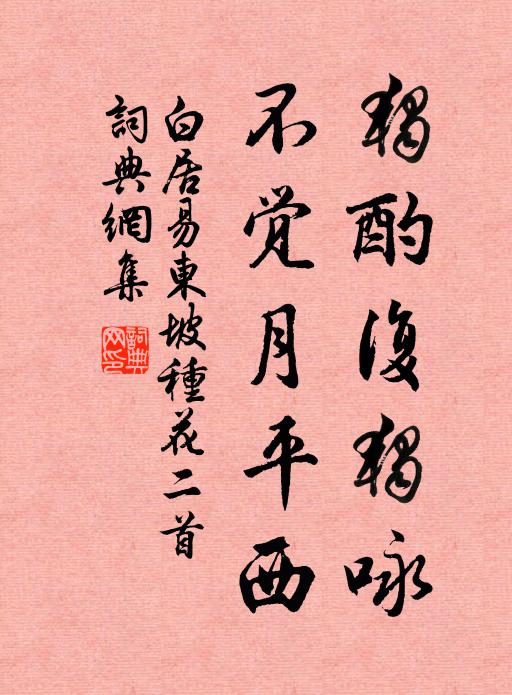 獨酌復獨咏
不覚月平西
白居易東坡種花二首
詞典網集
詞典網印